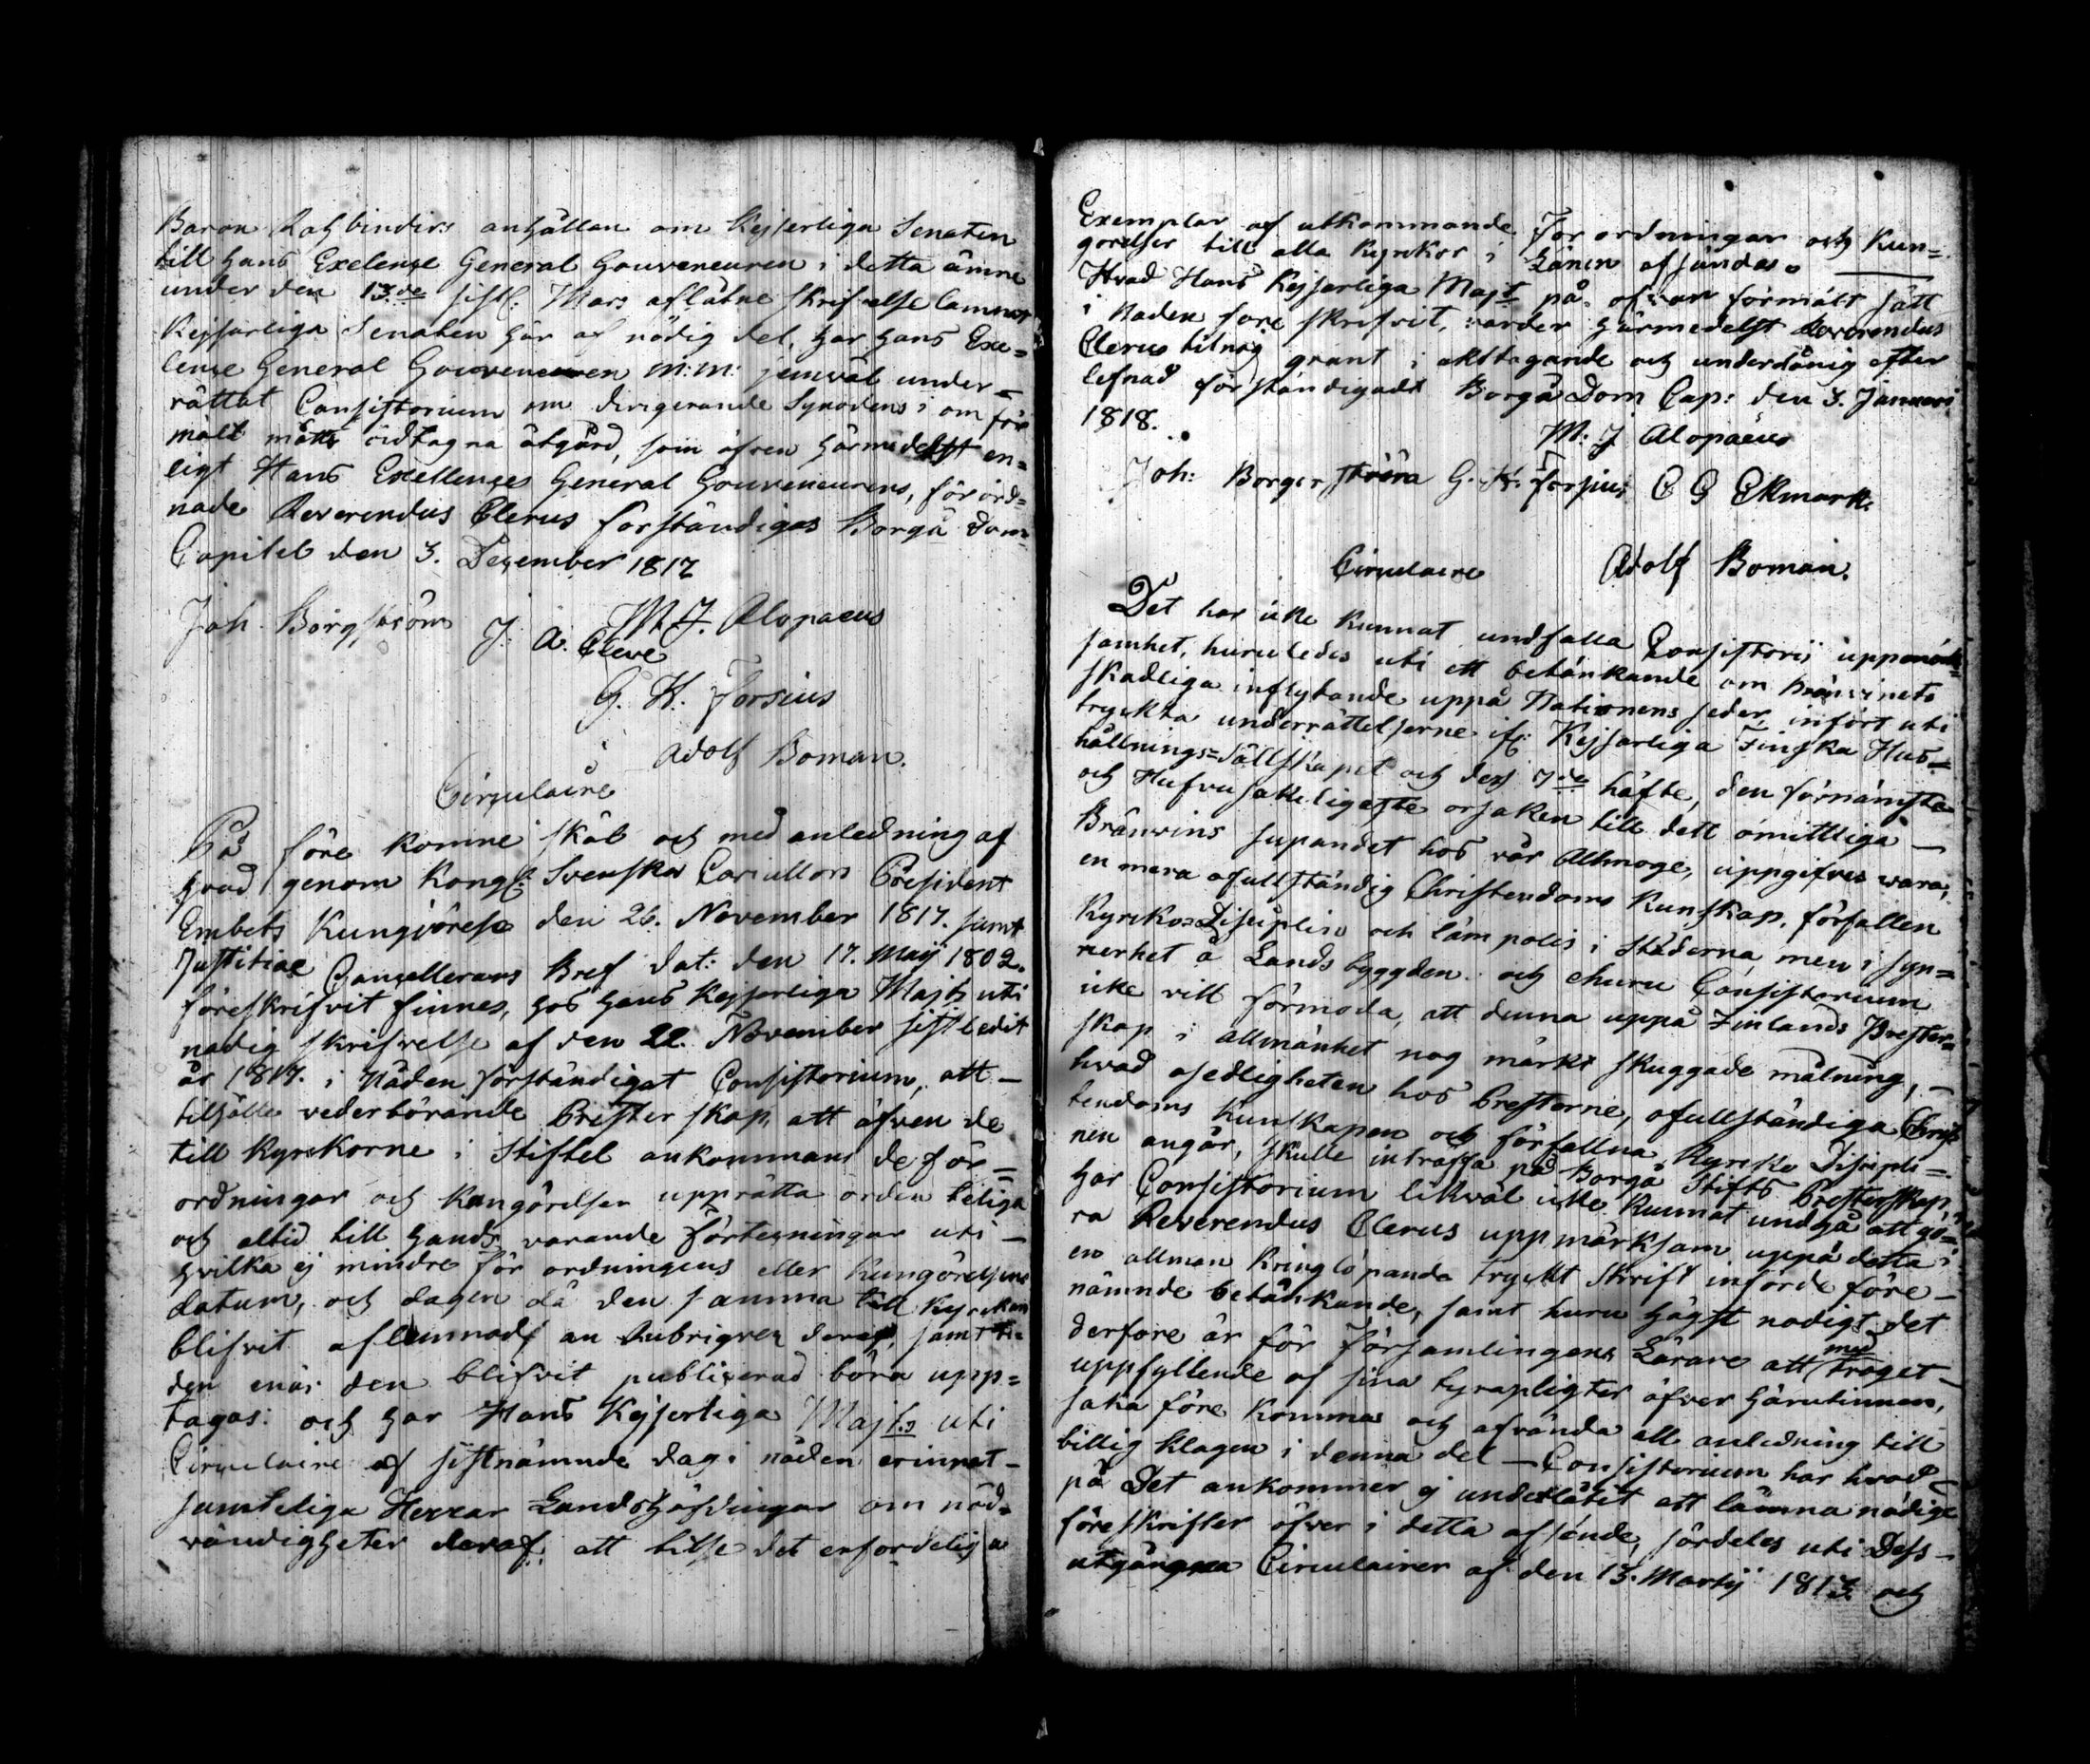 Baron Rehbinders anhållan om Kejserliga Senaten
till hans Exelense General Gouveneuren i detta ämne
under den 13de sistl. Mars aflåtne skrifvelse lamnat
Kejserliga Senaten här af nödig del, har hans Exe=
lense General Gouveneuren m:m: jemväl under=
rättat Consistorium om dirigerande Synodens i om för
mält måtto vidtagna åtgärd, som äfven härmedelst en=
ligt Hans Exellenses General Gouveneurens, förord=
nade Reverendus Clerus förständigas Borgå Dom=
Capitel den 3. December 1817
M. J. Alopaeus
Joh. Borgström J. A. Cleve
G. H. Forsius
Adolf Boman.
Circulaire
På före komne skäl och med anledning af
hvad genom Kongl. Svenska Cancellors President
Embets Kungjörelse den 26. November 1817. samt
Justitiae Cancellerans Bref dat: den 17. Maij 1802.
föreskrifvit finnes, hos hans Kejserliga Majts uti
nådig skrifvelse af den 22. November sistledit
år 1817. i Nåden förständigat Consistorium, att –
tilhålla vederbörande Presterskap, att äfven de
till Kyrkorne i Stiftet ankommande för=
ordningar och Kungörelser upprätta ordenteliga
och altid till hands varande förteckningar uti –
hvilka ej mindre förordningens eller Kungörelsens
datum, och dagen då den samma till Kyrckan
blifvit aflemnad, än Rubriquen deraf, samt ti=
den enär den blifvit publicerad böra upp=
tagas: och har Hans Kejserliga Majts uti
Circulaire af sistnämnde dag i nåden erinnat –
samteliga Herrar Landshöfdingar om nöd=
vändigheten deraf att tilse det erfordeliga
Exemplar af utkommande Förordningar och Kun=
görelser till alla Kyrckor i Länen afsändas.
Hvad Hans Kejserliga Majt på ofvan förmält sätt
i Naden fore skrifvit, varder härmedelst Reverendus
Clerus til nog grant i akttagande och underdånig efter
lefnad förständigadt Borgå Dom Cap: den 3. Januari
1818.
M. J Alopaeus
Joh: Borgerström G. H. Forsius C G Ekmark.
Adolf Boman.
Circulaire
Det har icke kunnat undfalla Consistorii uppmärk=
samhet, huruledes uti ett betänkande om Bränvinets
skadliga inflytande uppå Nationens seder, infört uti
tryckta underrättelserne if: Kejserliga Finska Hus=
hållnings=Sällskapet och dess 7de häfte, den förnämsta
och Hufvusakeligaste orsaken till dett omåttliga –
Bränvins supandet hos vår Allmoge, uppgifves vara,
en mera ofullständig Christendoms Kunskap, förfallen
Kyrcko=Disciplin och läm polis i Städerna, men i syn=
nerhet å Landsbyggden. och ehuru Consistorium
icke vill förmoda, att denna uppå Finlands Prester=
skap i allmänhet nog märkt skuggade målning, –
hvad osedligheten hos Presterne, ofullständiga Chris
tendoms kunskapen och förfallna Kyrcko Discipli=
nen angår, skulle intraffa på Borgå Stifts Presterskap,
har Consistorium likväl icke kunnat undgå att gö=
ra Reverendus Clerus uppmärksam uppå detta i
en allmän kringlöpande tryckt skrift införde före –
nämnde betänkande, samt huru högst nödigt det
derfore är för Församlingens Lärare att med troget –
uppfyllende af sina dyra pligter äfver härutinnan,
saka före komma och afvända all anledning till
billig klagan i denna del – Consistorium har hvad
på Det ankommer ej underlåtit att lämna nådige
föreskrifter öfver i detta afseende, särdeles uti Dess –
utgångna Circulairer af den 13. Martij 1813 och